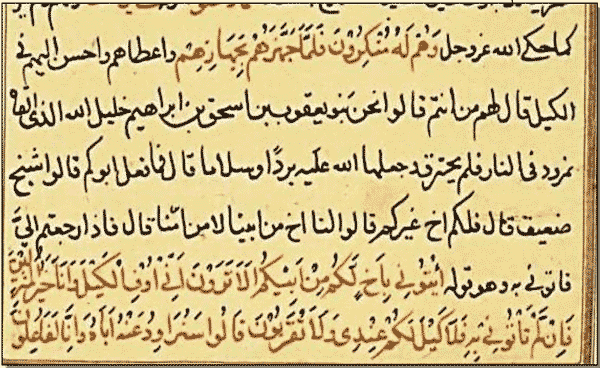 كما حكى الله عز وجل وَهُمْ لَهُ مُنْكِرُونَ فَلَمَّا جَهَّزَهُمْ بِجَهَازِهِمْ واعطاهم واحسن اليهم في
الكيل قال لهم من انتم قالوا نحن بنو يعقوب بن اسحق بن ابراهيم خليل الله الذى القاه
نمرود فى النار فلم يحترق وجعلها الله عليه بردًا وسلاما قال فما فعل ابوكم قالوا شيخ
ضعيف قال فلكم اخ غيركم قالوا لنا اخ من ابينا لا من امّنا قال فاذا رجعتم اليَّ
فاتونى به وهو قوله ائْتُونِي بِاَخٍ لَّكُمْ مِنْ اَبِيكُمْ اَلَا تَرَوْنَ اَنِّي اُوفِ الْكَيْلَ وَاَنَا خَيْرُ الْمُنْزِلِينَ
فَاِنْ لَمْ تَاْتُونِي بِهِ فَلَا كَيْلَ لَكُمْ عِنْدِى وَلَا تَقْرَبُونَ قَالُوا سَنُرَاوِدُ عَنْهُ اَبَاهُ وَاِنَّا لَفَاعِلُونَ